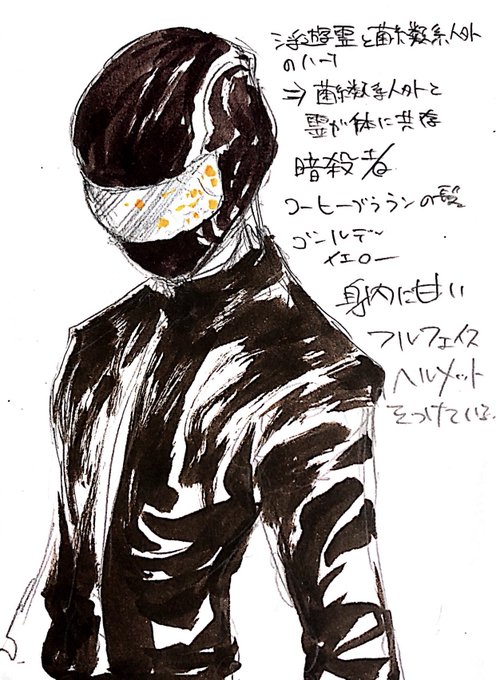 浮遊霊と菌糸数系人外
のハーフ
⇒菌糸数系人外と
霊が体に共存
暗殺者
コーヒーブラウンの髪
ゴールデン
イエロー
身内に甘い
フルフェイス
ヘルメット
をつけている。